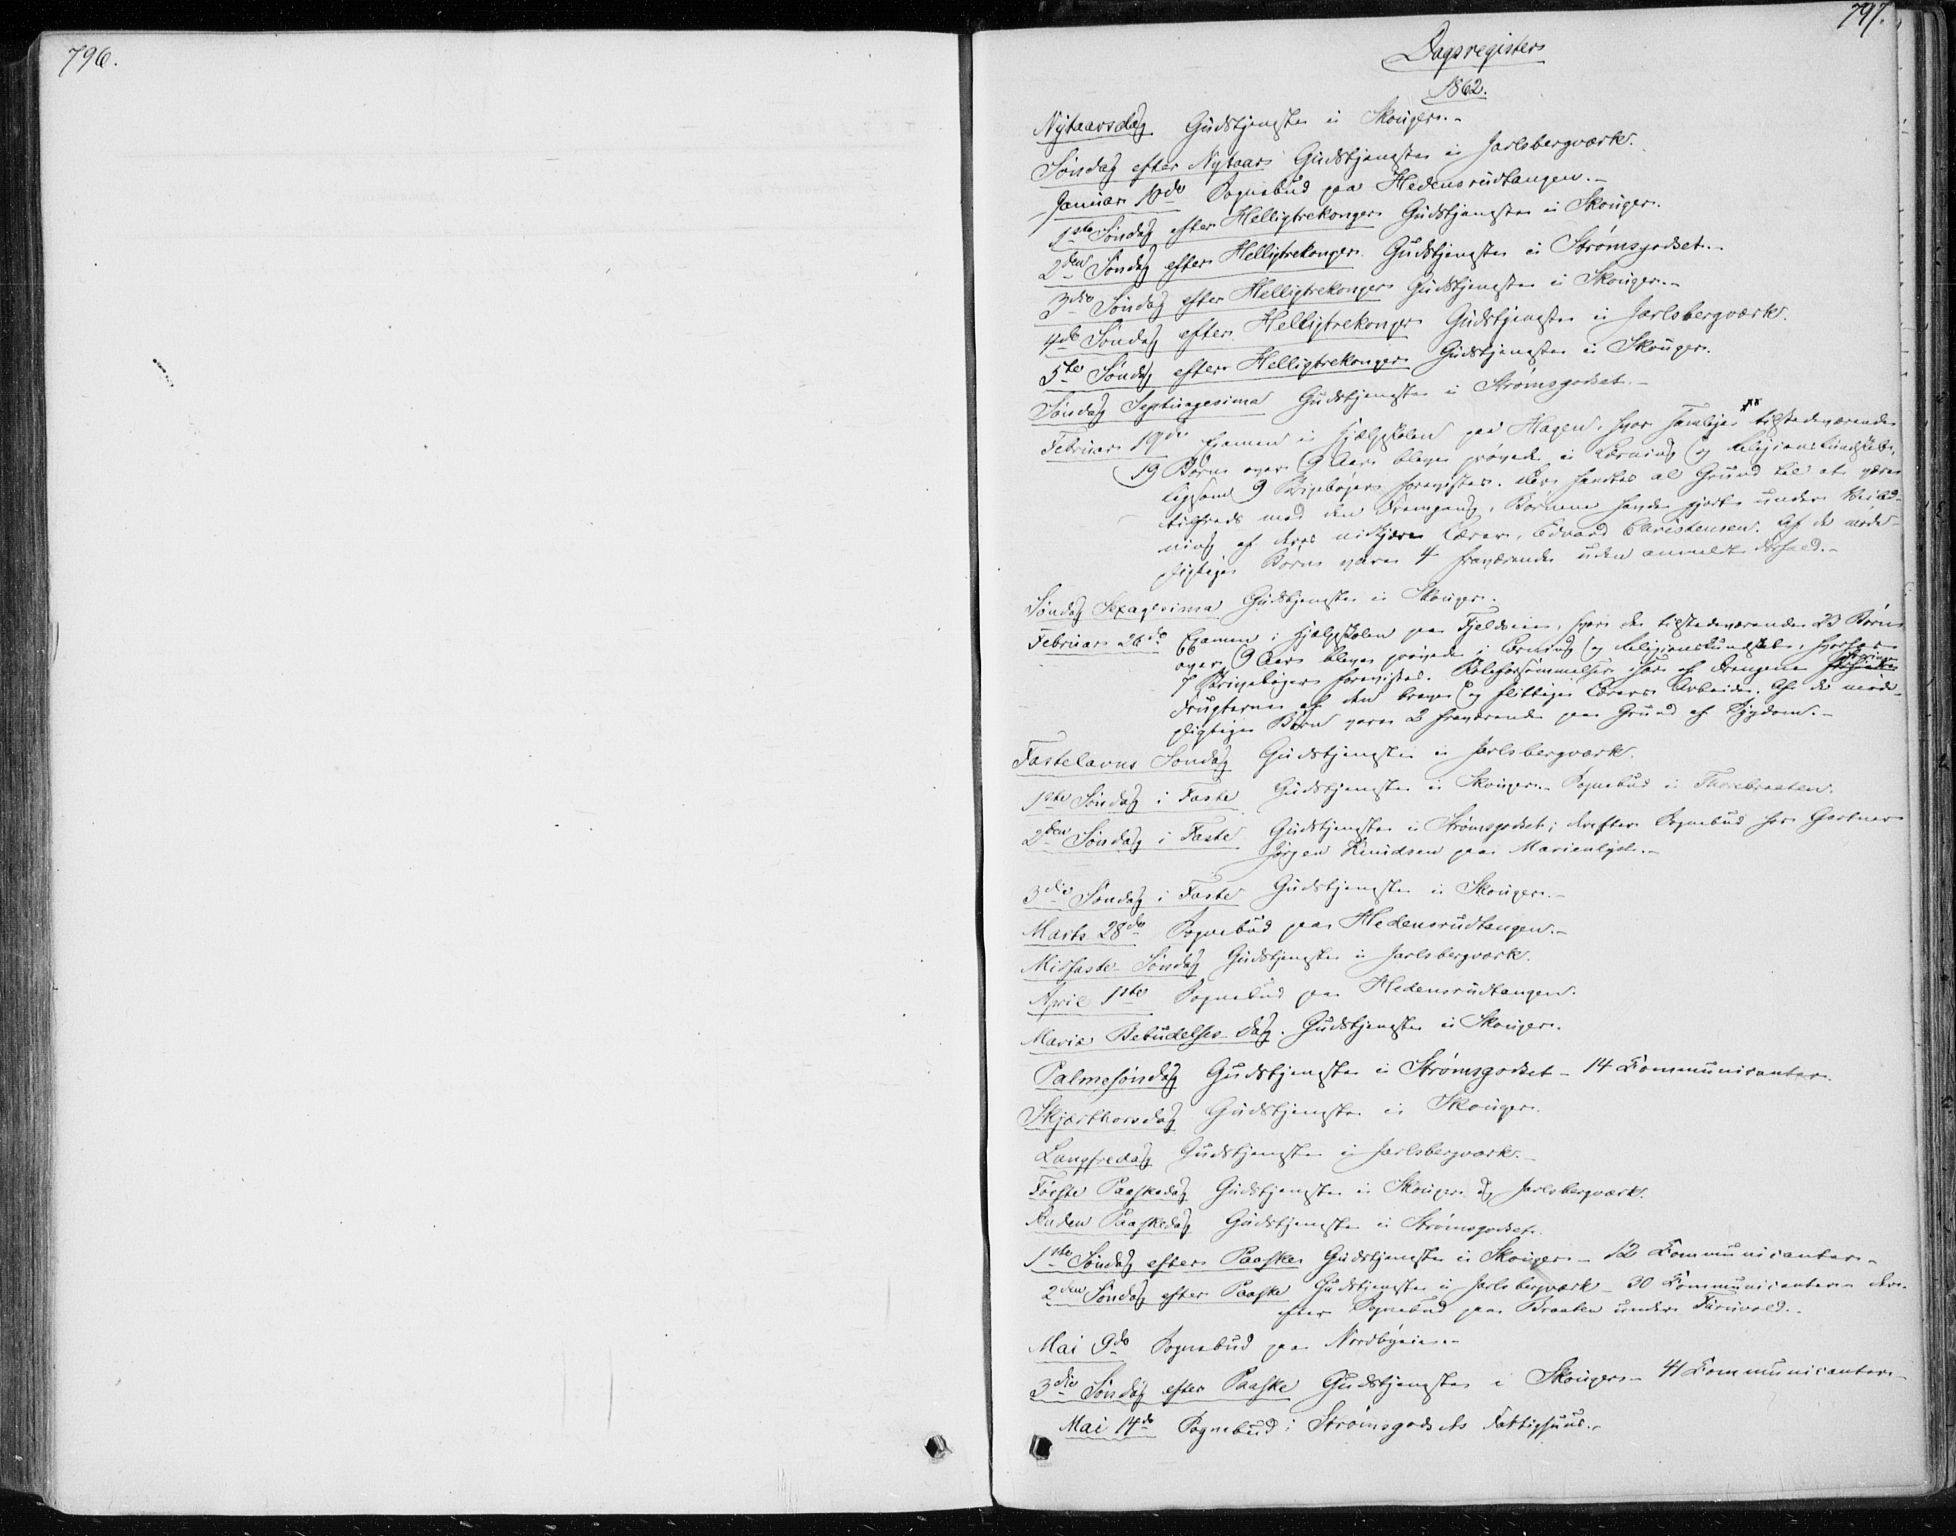 796.
797.
Dagsregister
1862.
Nytaarsdag Gudstjeneste i Skouger.-
Søndag efter Nytaar Gudstjeneste i Jarlsbergværk.
Januar 10de Sognebud paa Hedensrudtangen.-
1ste Søndag efter Helligtrekonger Gudstjeneste i Skouger.
2den Søndag efter Helligtrekonger Gudstjeneste i Strømsgodset.-
3die Søndag efter Helligtrekonger Gudstjeneste i Skouger.-
4de Søndag efter Helligtrekonger Gudstjeneste i Jarlsbergværk.
5te Søndag efter Helligtrekonger Gudstjeneste i Skouger.
Søndag Septuagesima Gudstjeneste i Strømsgodset.-
Februar 19de Examen i Hjælpskolen paa Hagen, hvor samtlige tilstedeværende
19 Børn over 9 Aar bleve prøvede i Læsning og Religionskundskab,
ligesom 9 Skrivebøger forevistes. Der fandtes al Grund til at være
tilfreds med den Fremgang, Børnene havde gjort under Veiled-
ning af deres Lærer, Edvard Christensen. Af de møde-
pligtige Børn vare 4 fraværende uden anmeldt Forfald.-
Søndag Sexagesima Gudstjeneste i Skouger.
Februar 26de Examen i Hjælpskolen paa Fjeldeie, hvor de tilstedeværende 23 Børn
over 9 Aar bleve prøvede i Læsning og Religionskundskab, hvorhos
7 Skrivebøger forevistes. Skoleforsømmelser især af Drengene
Frugterne af den brave og flittige Lærers Arbeide. Af de møde-
pligtige Børn vare 2 fraværende paa Grund af Sygdom.-
Fastelavns Søndag Gudstjeneste i Jarlsbergværk.
1ste Søndag i Faste Gudstjeneste i Skouger.- Sognebud i Thorebraaten.
2den Søndag i Faste Gudstjeneste i Strømsgodset; derefter Sognebud hos Gartner
Jørgen Knudsen paa Marienlyst.-
3die Søndag i Faste Gudstjeneste i Skouger.-
Marts 28de Sognebud paa Hedensrudtangen.-
Midfaste Søndag Gudstjeneste i Jarlsbergværk.
April 1ste Sognebud paa Hedensrudtangen.
Mariæ Bebudelses-dag. Gudstjeneste i Skouger.
Palmesøndag Gudstjeneste i Strømsgodset - 14 Communicanter.
Skjærthorsdag Gudstjeneste i Skouger.
Langfredag Gudstjeneste i Jarlsbergværk.-
Første Paaskedag Gudstjeneste i Skouger og Jarlsbergværk.
Anden Paaskedag Gudstjeneste i Strømsgodset.
1ste Søndag efter Paaske Gudstjeneste i Skouger - 12 Communicanter.
2den Søndag efter Paaske Gudstjeneste i Jarlsbergværk - 30 Communicanter der-
efter Sognebud paa Braaten under Furuvold.-
Mai 9de Sognebud paa Nordbyeie.-
3die Søndag efter Paaske Gudstjeneste i Skouger - 41 Communicanter.-
Mai 14de Sognebud i Strømsgodsets Fattighuus.-